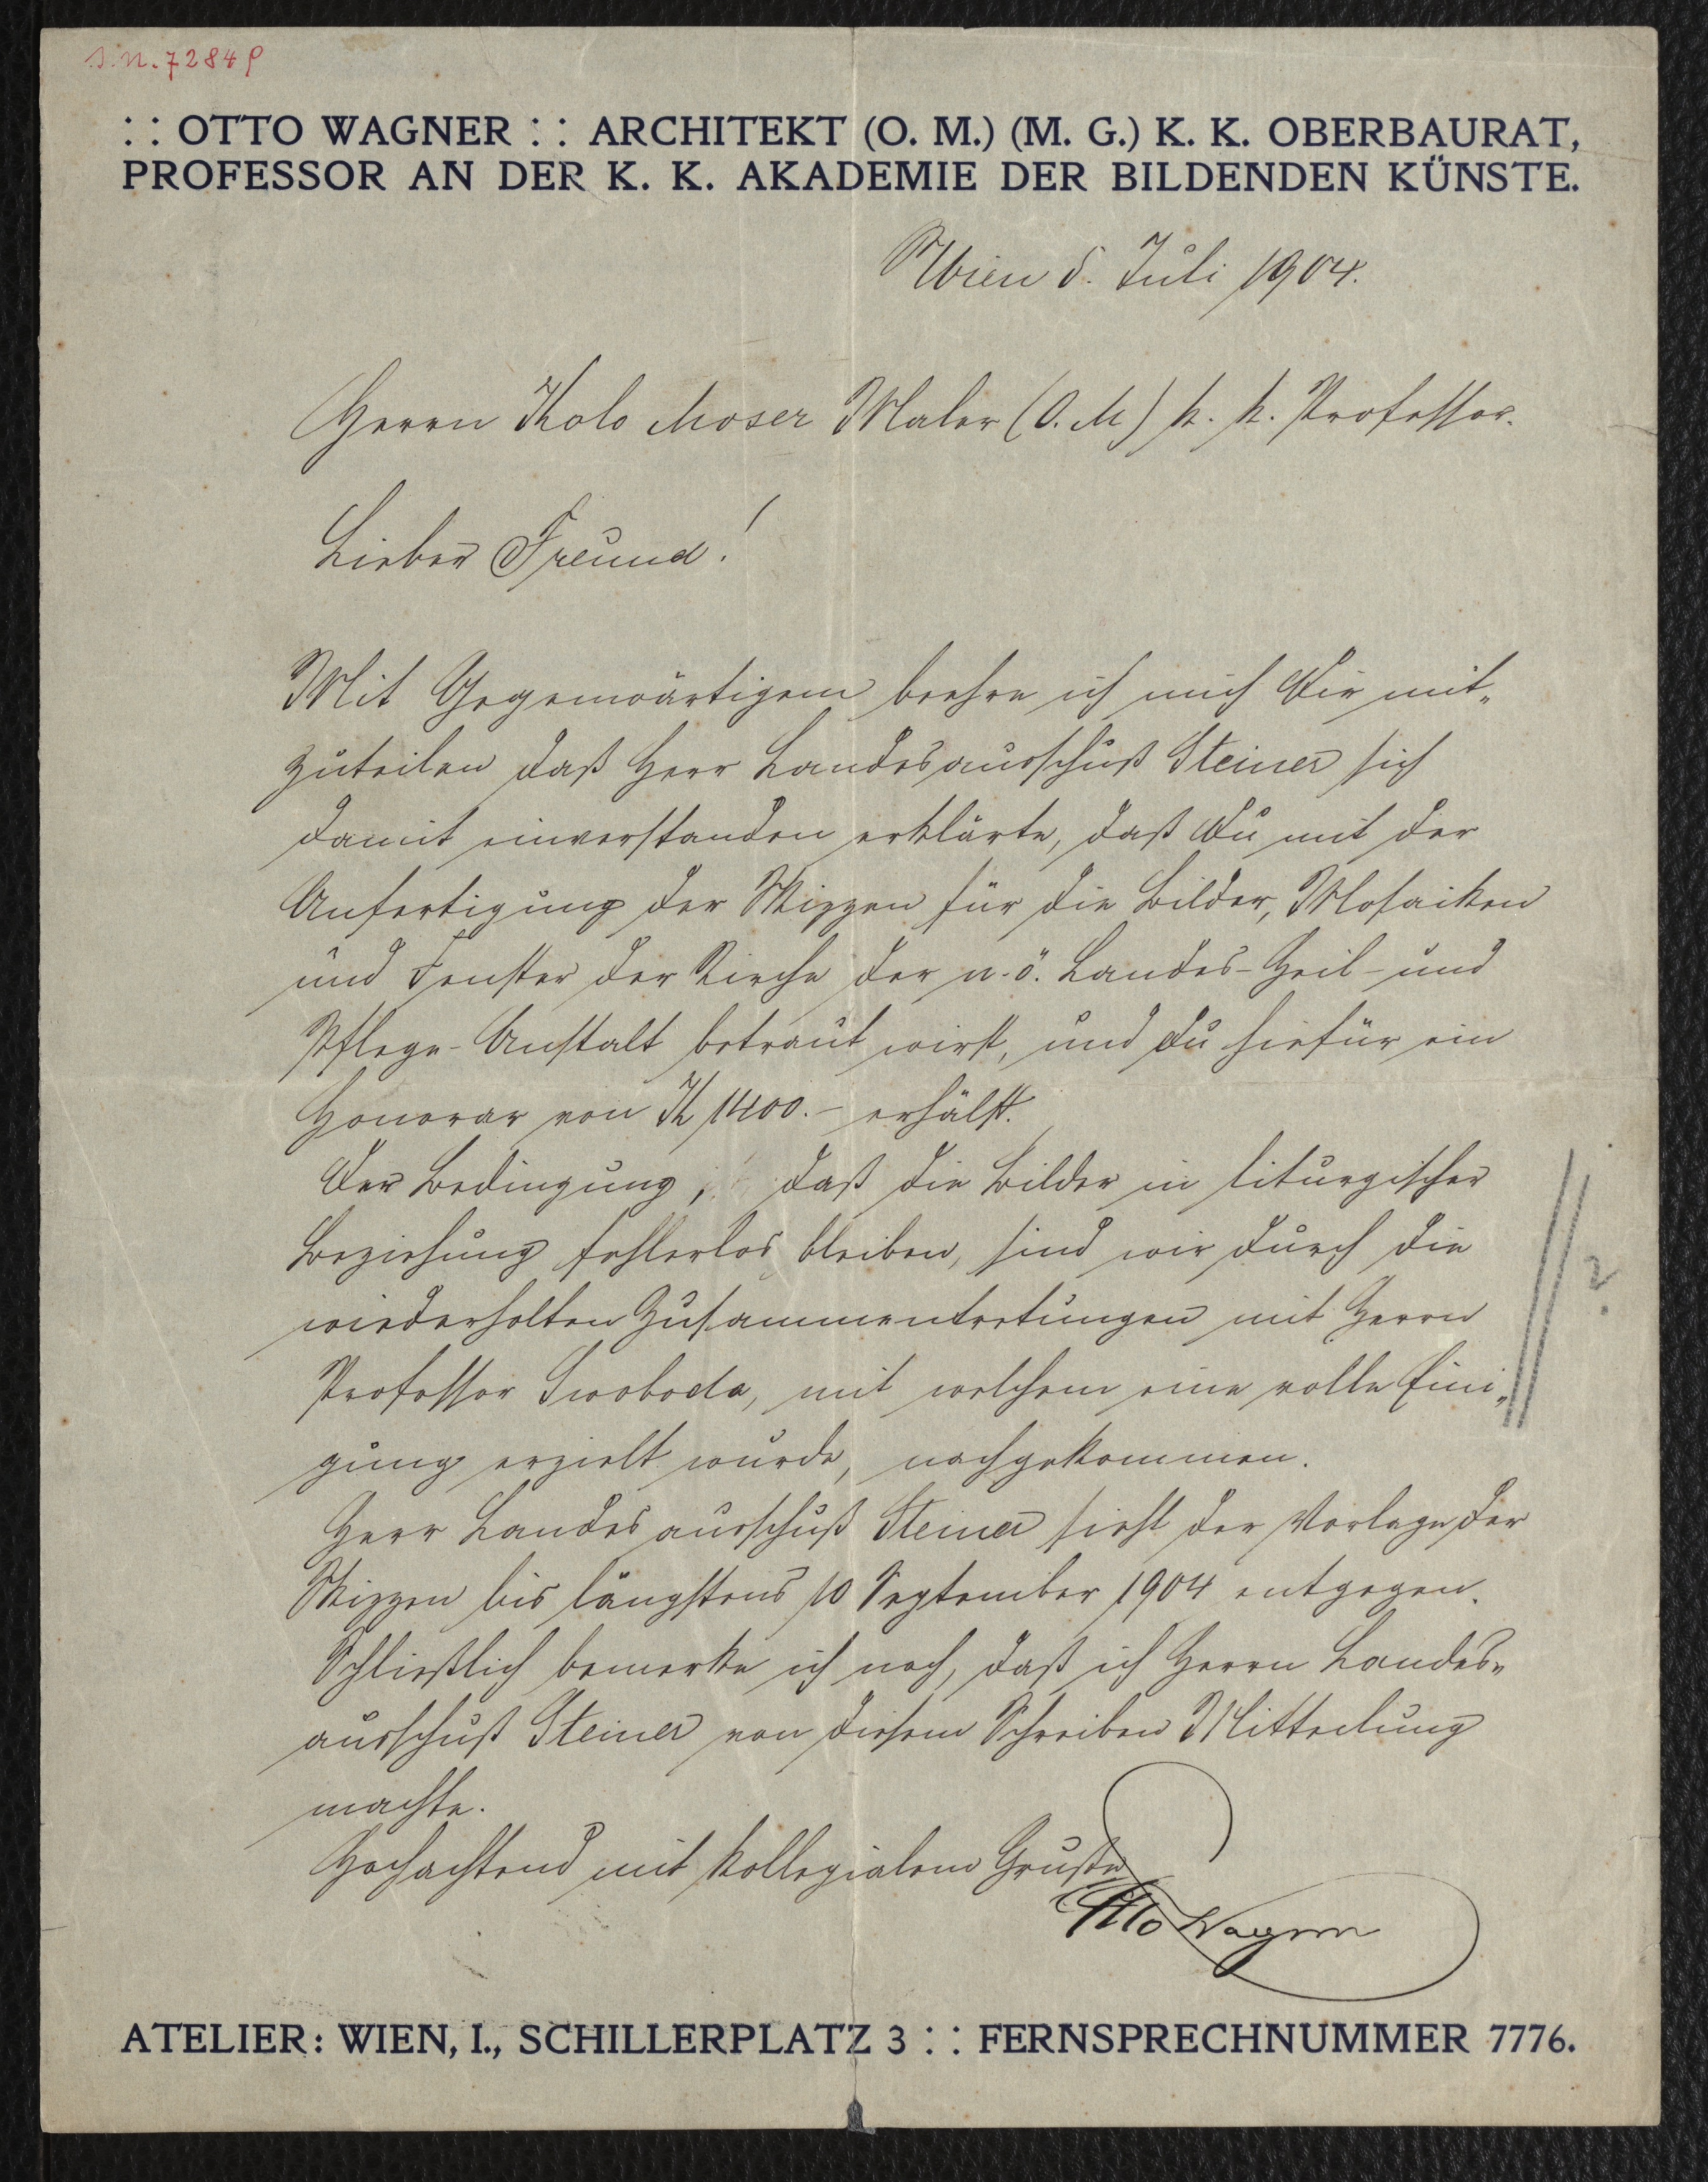 I.N. 72849
:: OTTO WAGNER :: ARCHITEKT (O. M.) (M. G.) K. K. OBERBAURAT,
PROFESSOR AN DER K. K. AKADEMIE DER BILDENDEN KÜNSTE.
Wien 5. Juli 1904.
Herrn Kolo Moser Maler (O. M) k. k. Professor.
Lieber Freund!
Mit Gegenwärtigem beehre ich mich Dir mit-
zuteilen daß Herr Landesausschuß Steiner sich
damit einverstanden erklärte, daß Du mit der
Anfertigung der Skizzen für die Bilder, Mosaiken
und Fenster der Kirche der n.ö. Landes-Heil- und
Pflege-Anstalt betraut wirst, und Du hiefür ein
Honorar von K 1400.- erhälst.
Der Bedingung, daß die Bilder in liturgischer
Beziehung fehlerlos bleiben, sind wir durch die
wiederholten Zusammentretungen mit Herrn
Professor Swoboda, mit welchem eine volle Eini-
gung erzielt wurde, nachgekommen.
?
Herr Landesausschuß Steiner sieht der Vorlage der
Skizzen bis längstens 10 September 1904 entgegen.
Schließlich bemerke ich noch, daß ich Herrn Landes-
ausschuß Steiner von diesem Schreiben Mitteilung
machte.
Hochachtend mit kollegialem Gruße
Otto Wagner
ATELIER: WIEN, I., SCHILLERPLATZ 3 :: FERNSPRECHNUMMER 7776.